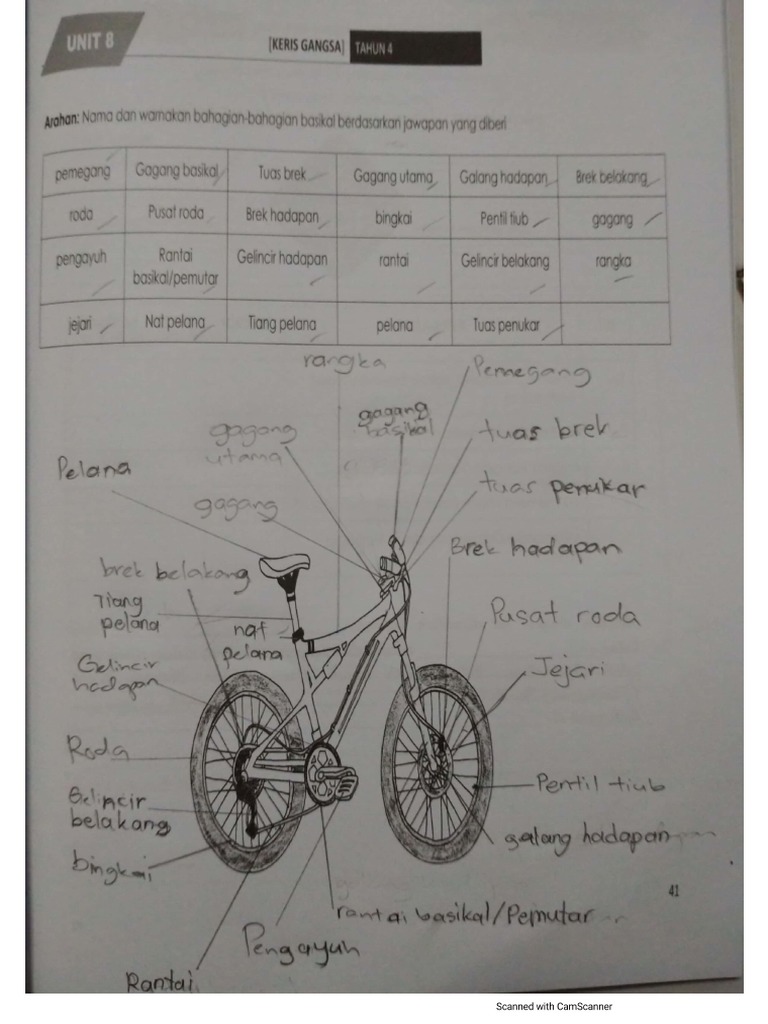 UNIT 8
[KERIS GANGSA] TAHUN 4
Arahan: Nama dan warnakan bahagian-bahagian basikal berdasarkan jawapan yang diberi
pemegang Gagang basikal Tuas brek Gagang utama Galang hadapan Brek belakang
roda Pusat roda Brek hadapan bingkai Pentil tiub gagang
pengayuh Rantai basikal/pemutar Gelincir hadapan rantai Gelincir belakang rangka
jejari Nat pelana Tiang pelana pelana Tuas penukar
rangka
Pemegang
gagang
basikal
gagang
utama
tuas brek
Pelana
tuas penukar
gagang
Brek hadapan
brek belakang
Tiang
pelana
Pusat roda
nat
pelana
Gelincir
hadapan
Jejari
Roda
Pentil tiub
Gelincir
belakang
galang hadapan
bingkai
41
rantai basikal/Pemutar
Pengayuh
Rantai
Scanned with CamScanner